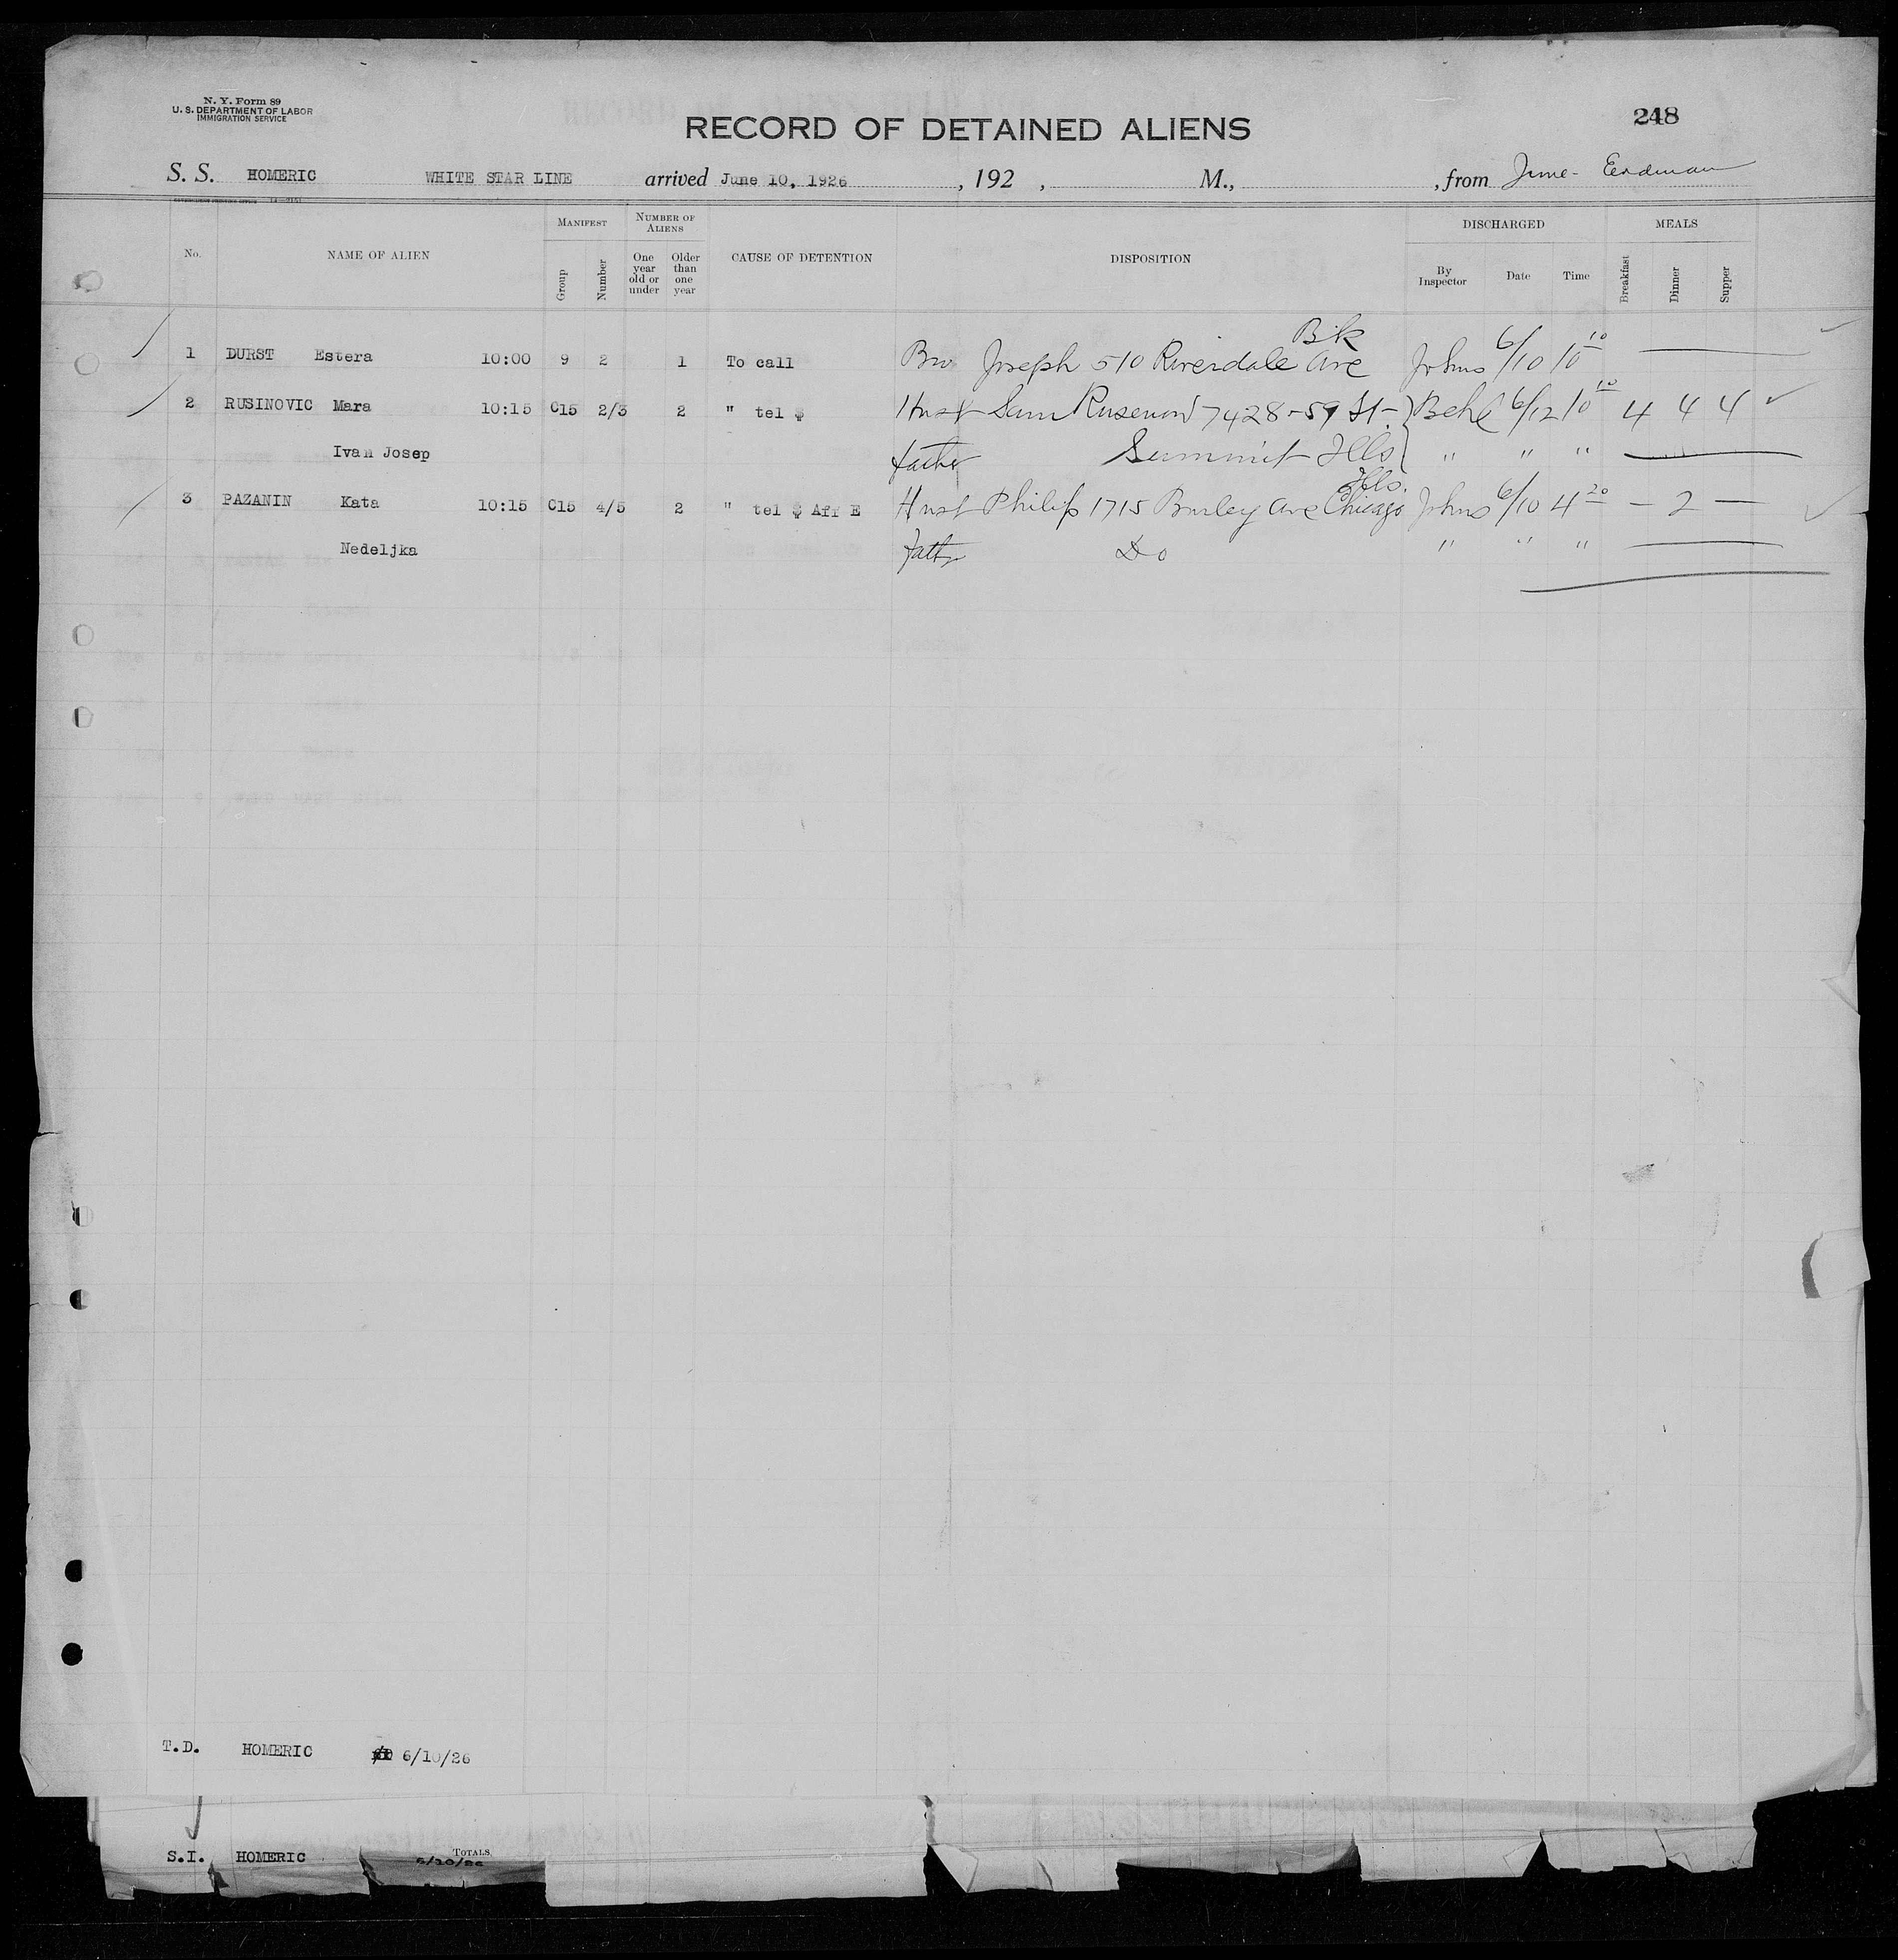 N. Y. Form 89
U. S. DEPARTMENT OF LABOR
IMMIGRATION SERVICE
248
RECORD OF DETAINED ALIENS
S. S. HOMERIC WHITE STAR LINE arrived June 10, 1926 , 192 , M., , from June - Erdman
No. NAME OF ALIEN MANIFEST Group Number NUMBER OF ALIENS One year old or under Older than one year CAUSE OF DETENTION DISPOSITION DISCHARGED By Inspector Date Time MEALS Breakfast Dinner Supper
1 DURST Estera 10:00 9 2 1 To call Bro Joseph 510 Riverdale Ave Bik Johns 6/10 10 10
2 RUSINOVIC Mara 10:15 C15 2/3 2 " tel $ Husb Sam 7428-59 St- Behl 6/12 10 10 4 4 4
Ivan Josep father Summit Ills " " "
3 PAZANIN Kata 10:15 C15 4/5 2 " tel $ Aff E Husb Philip 1715 Burley Ave Chicago Ills. Johns 6/10 4 20 – 2 –
Nedeljka fath Do " " "
T.D. HOMERIC 6/10/26
S.I. HOMERIC TOTALS